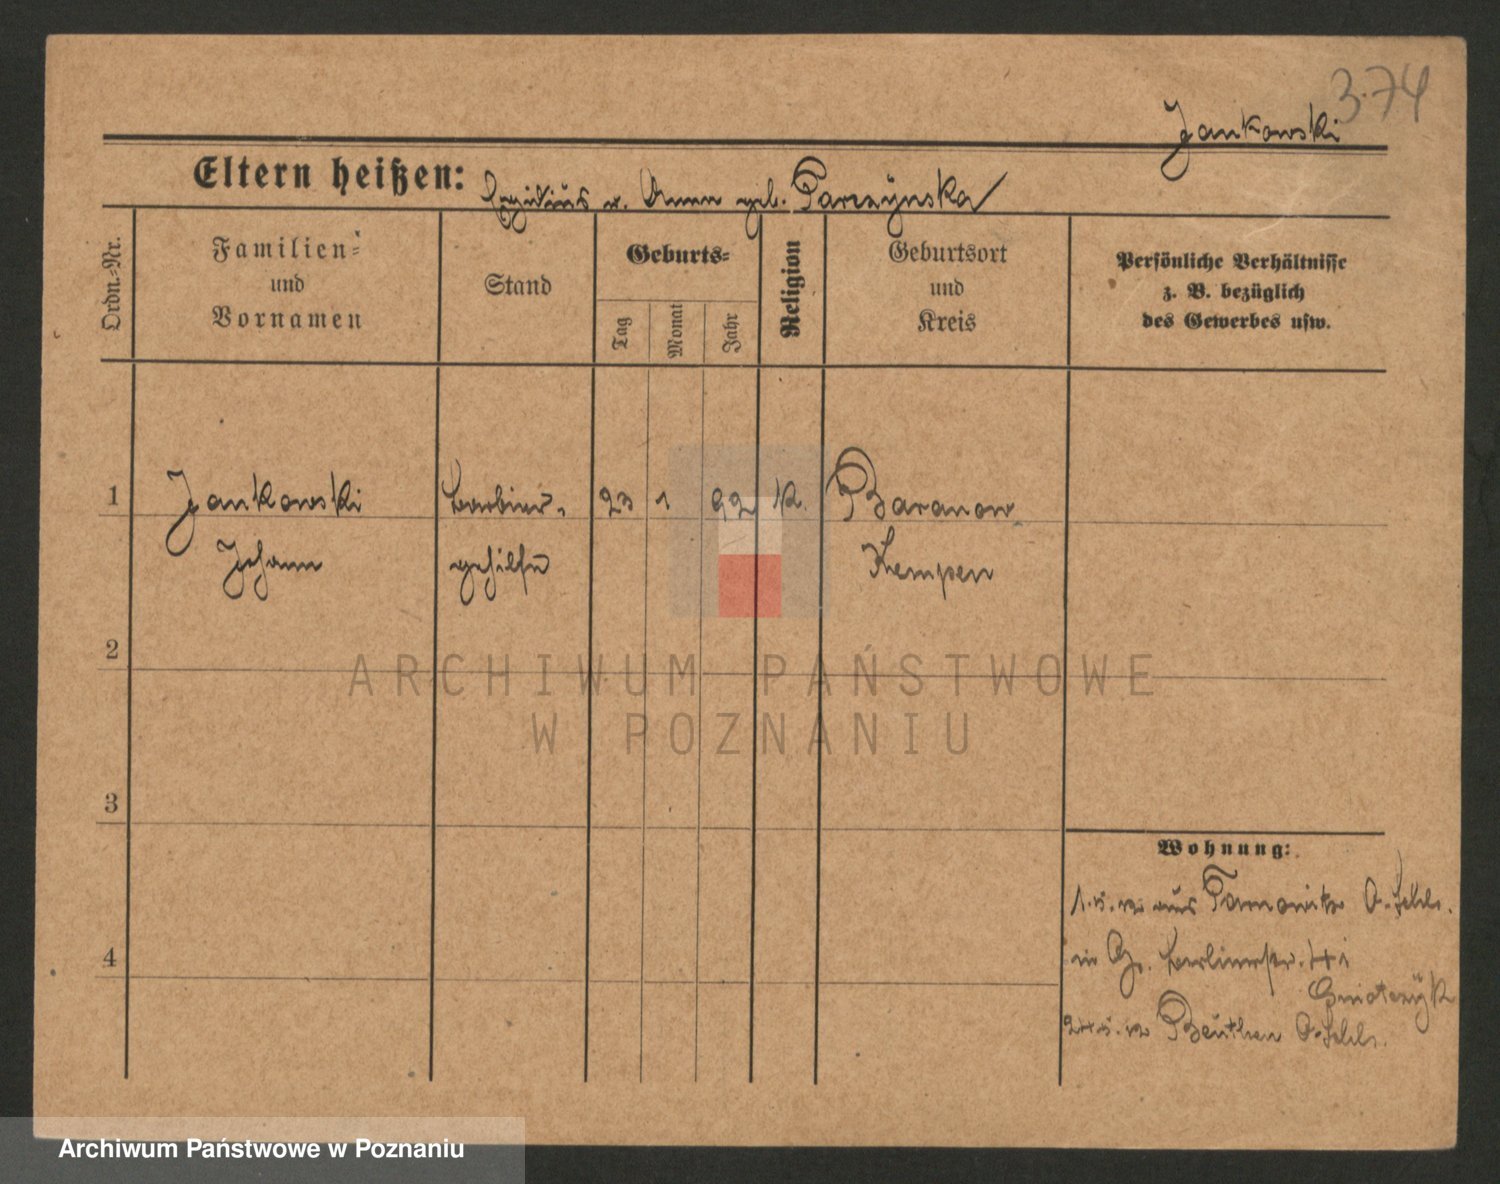 3.74
Jankowski
Eltern heißen: Egidius u. Anna geb. Parzynska
Ordn.=Nr.
Familien=
und
Vornamen
Stand
Geburts=
Tag
Monat
Jahr
Religion
Geburtsort
und
Kreis
Persönliche Verhältnisse
z. B. bezüglich
des Gewerbes usw.
1 Jankowski Barbier- 23 1 92 K. Baranow
Johann gehilfe Kempen
2
3
4
Wohnung:
aus Tarnowitz O.-Schl.
in Berlinerstr.
24.5. Beuthen O.-Schl.
ARCHIWUM PAŃSTWOWE
W POZNANIU
Archiwum Państwowe w Poznaniu